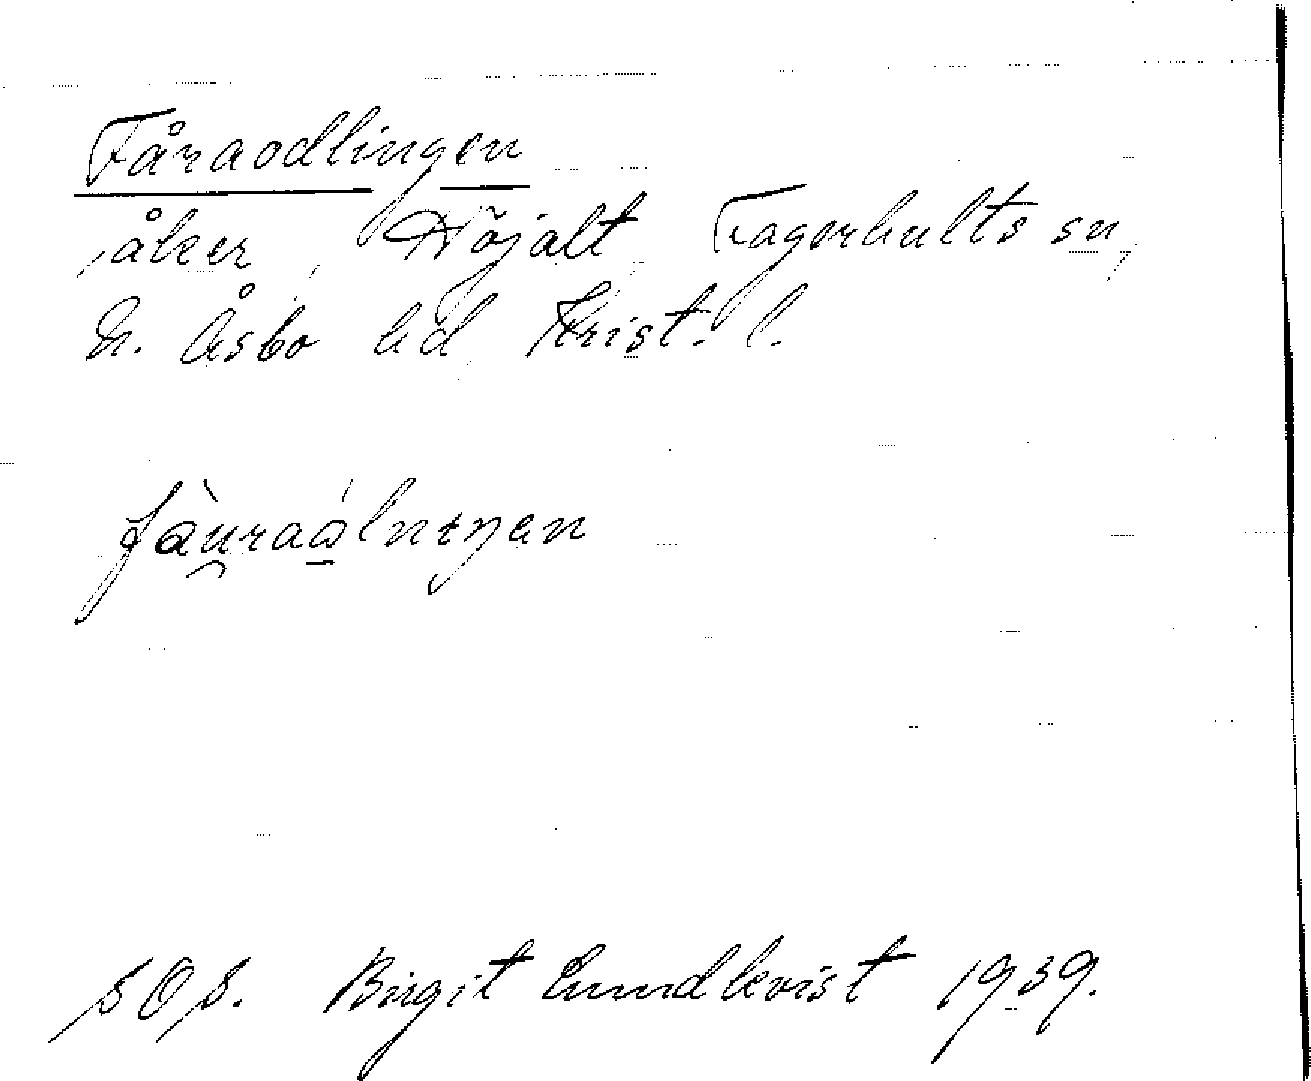 Fåraodlingen
åker, Höjalt, Fagerhults sn,
N. Åsbo hd, Krist. l.
fàu̯raólnıŋan
SOS. Birgit Lundkvist 1939.